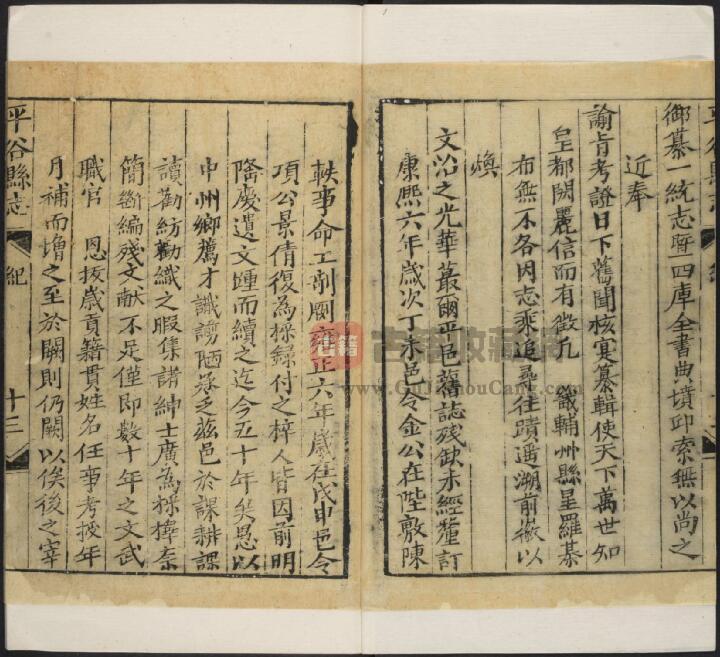 御纂一統志暨四庫全書典墳邱索無以尚之
近奉
諭旨考證日下舊聞核寔纂輯使天下萬世知
皇都閎麗信而有徵凡 畿輔州縣星羅棊
布無不各因志乘追尋往蹟遥溯前徽以
焕
文治之光華蕞爾平邑舊誌殘缺未經釐訂
康熙六年歲次丁未邑令金公在陛敷陳
軼事命工剞劂雍正六年歲在戊申邑令
項公景倩復為採録付之梓人皆因前明
隆慶遺文踵而續之迄今五十年矣愚以
中州鄉薦才譾謭陋承乏兹邑於課耕課
讀勸紡勸織之暇集諸紳士廣為採擇奈
簡斷編殘文献不足僅即數十年之文武
職官 恩拔歲貢籍貫姓名任事考授年
月補而增之至於闕則仍闕以俟後之宰
平谷縣志
紀
十三